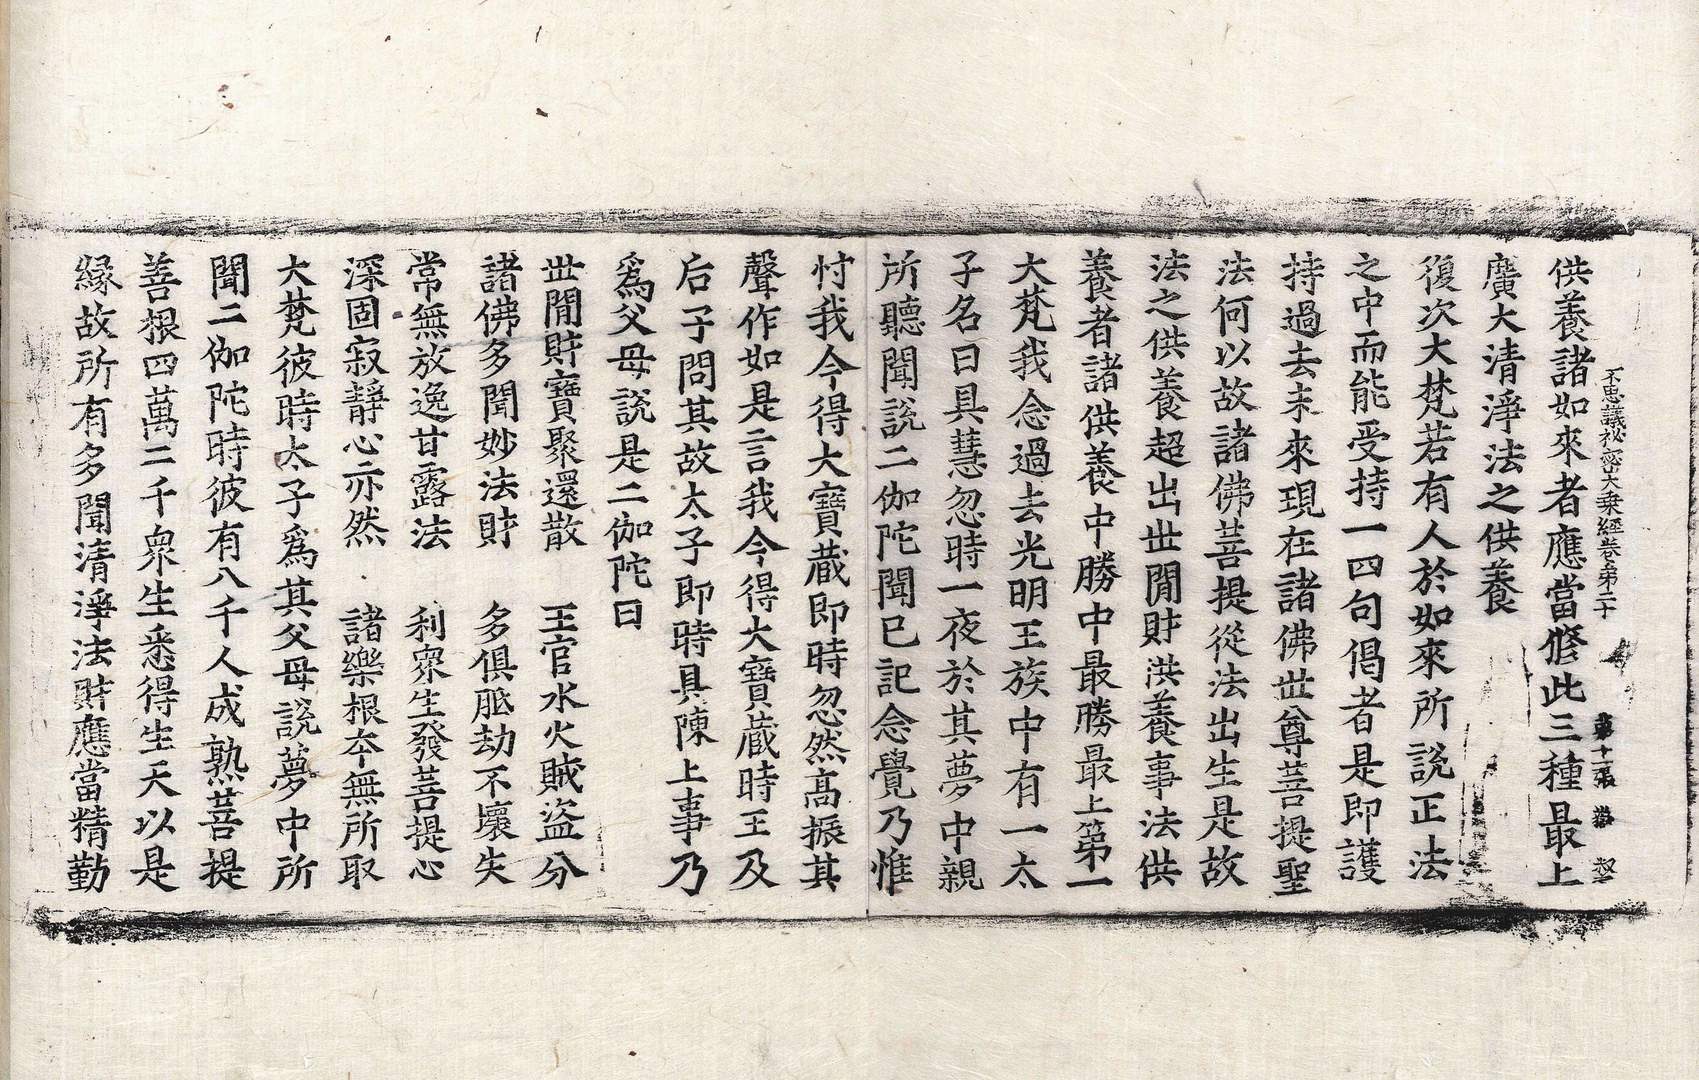 不思議祕密大乘經卷第二十
供養諸如來者應當修此三種最上
廣大清淨法之供養
復次大梵若有人於如來所說正法
之中而能受持一四句偈者是即護
持過去未來現在諸佛世尊菩提聖
法何以故諸佛菩提從法出生是故
法之供養超出世閒財供養事法供
養者諸供養中勝中最勝最上第一
大梵我念過去光明王族中有一太
子名曰具慧忽時一夜於其夢中親
所聽聞說二伽陀聞已記念覺乃惟
忖我今得大寶藏即時忽然高振其
聲作如是言我今得大寶藏時王及
后子問其故太子即時具陳上事乃
爲父母說是二伽陀曰
世閒財寶聚還散　王官水火賊盜分
諸佛多聞妙法財　多俱胝劫不壞失
常無放逸甘露法　利衆生發菩提心
深固寂靜心亦然　諸樂根本無所取
大梵彼時太子爲其父母說夢中所
聞二伽陀時彼有八千人成熟菩提
善根四萬二千衆生悉得生天以是
緣故所有多聞清淨法財應當精勤